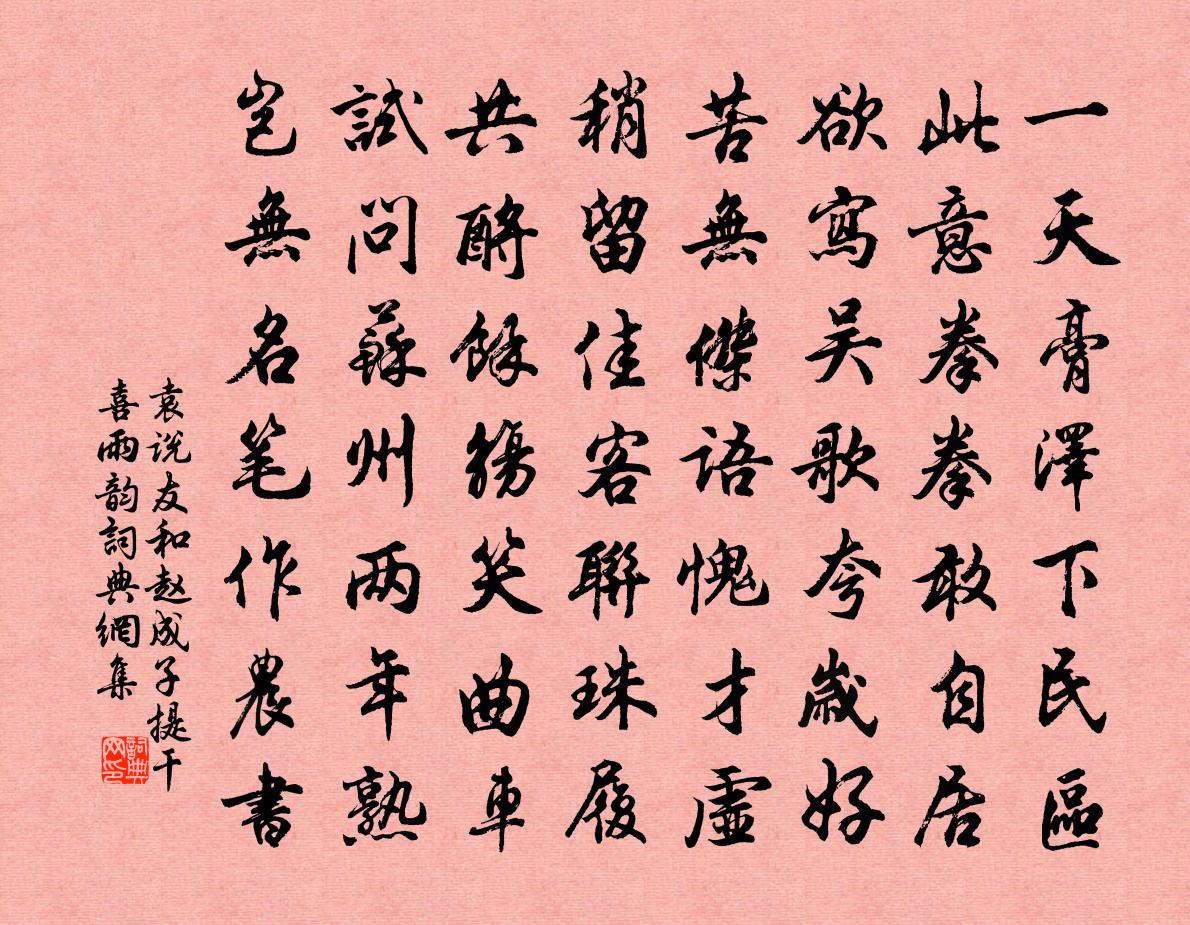 一天膏澤下民區
此意拳拳敢自居
欲寫吴歌夸歲好
苦無傑語愧才虛
稍留佳客聯珠履
共酹餘觴笑曲車
試問蘇州兩年熟
豈無名笔作農書
袁说友和赵成子提干
喜雨韵詞典網集
詞典网印